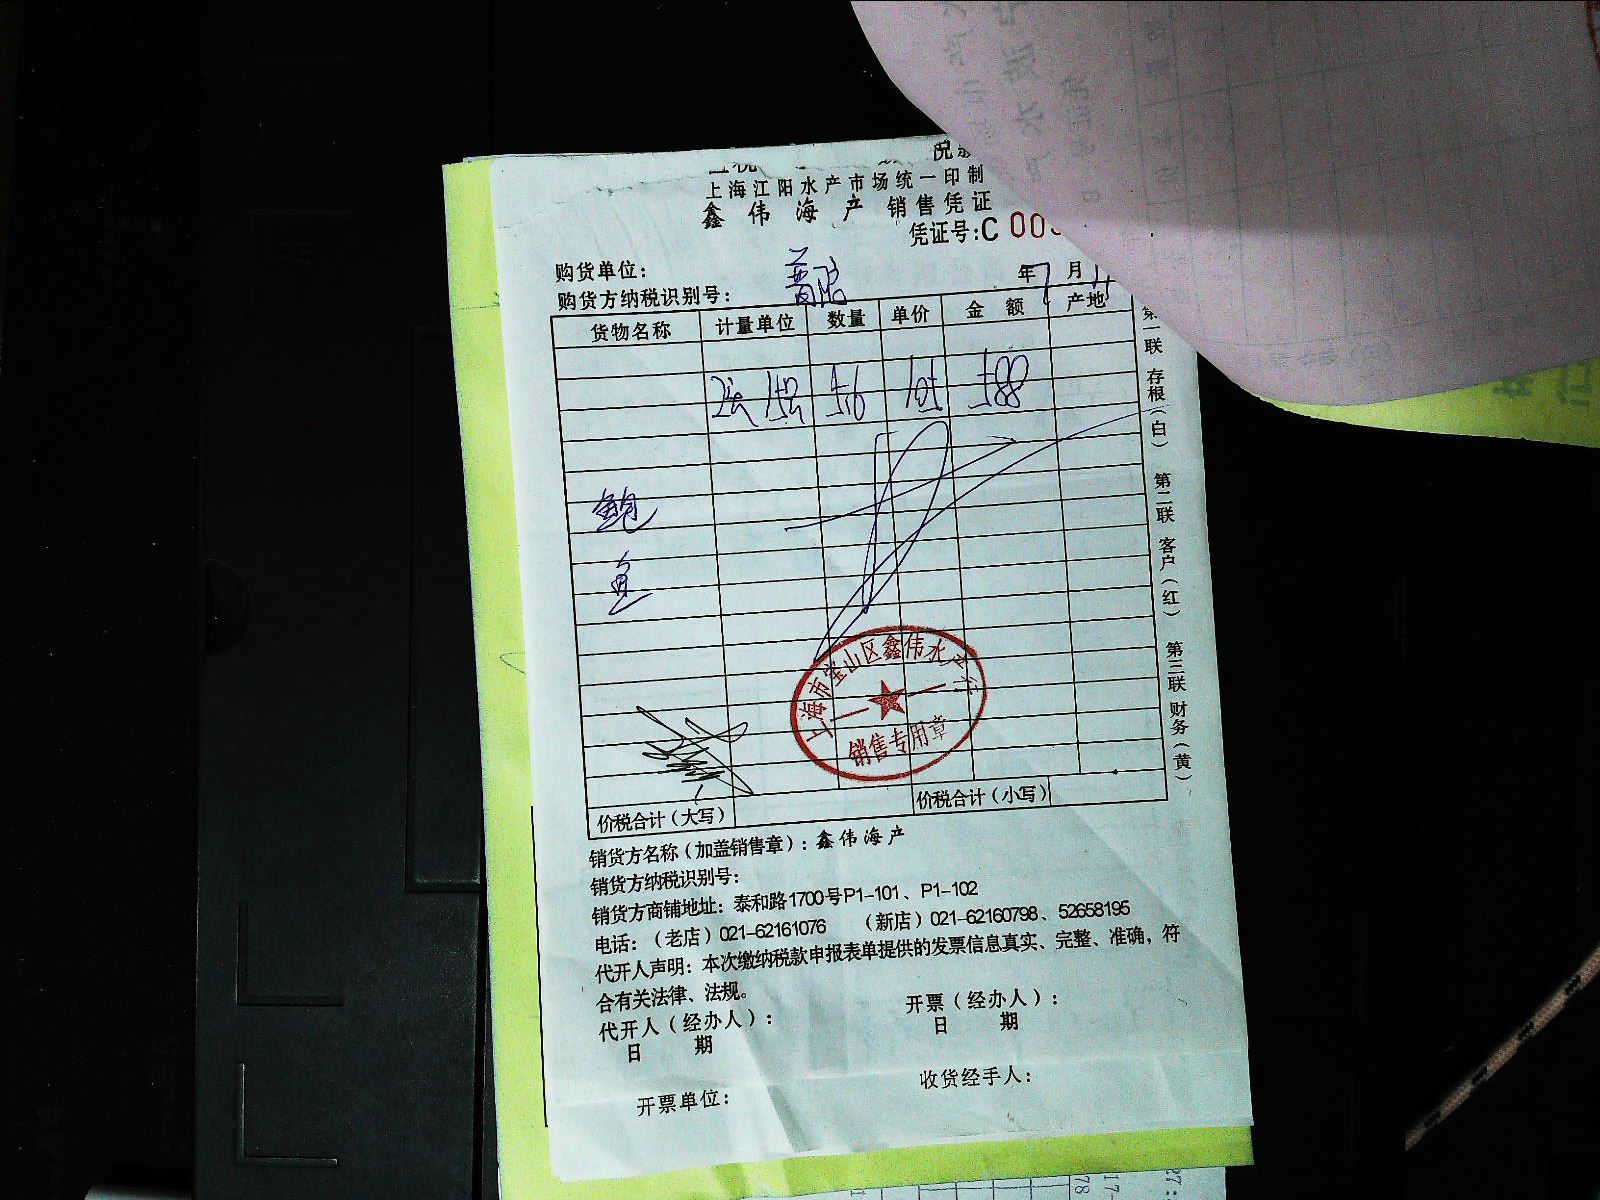 上海江阳水产市场统一印制
鑫伟海产 销售凭证
凭证号:C 00
购货单位:
年7月11
购货方纳税识别号:
货物名称 计量单位 数量 单价 金额 产地
5.6 105 588
鲍
鱼
上海市宝山区鑫伟水产行
销售专用章
价税合计(大写) 价税合计(小写)
第一联 存根(白) 第二联 客户(红) 第三联 财务(黄)
销货方名称(加盖销售章):鑫伟海产
销货方纳税识别号:
销货方商铺地址:泰和路1700号P1-101、P1-102
电话:(老店)021-62161076 (新店)021-62160798、52658195
代开人声明:本次缴纳税款申报表单提供的发票信息真实、完整、准确,符
合有关法律、法规。
代开人(经办人): 开票(经办人):
日 期 日 期
开票单位: 收货经手人: